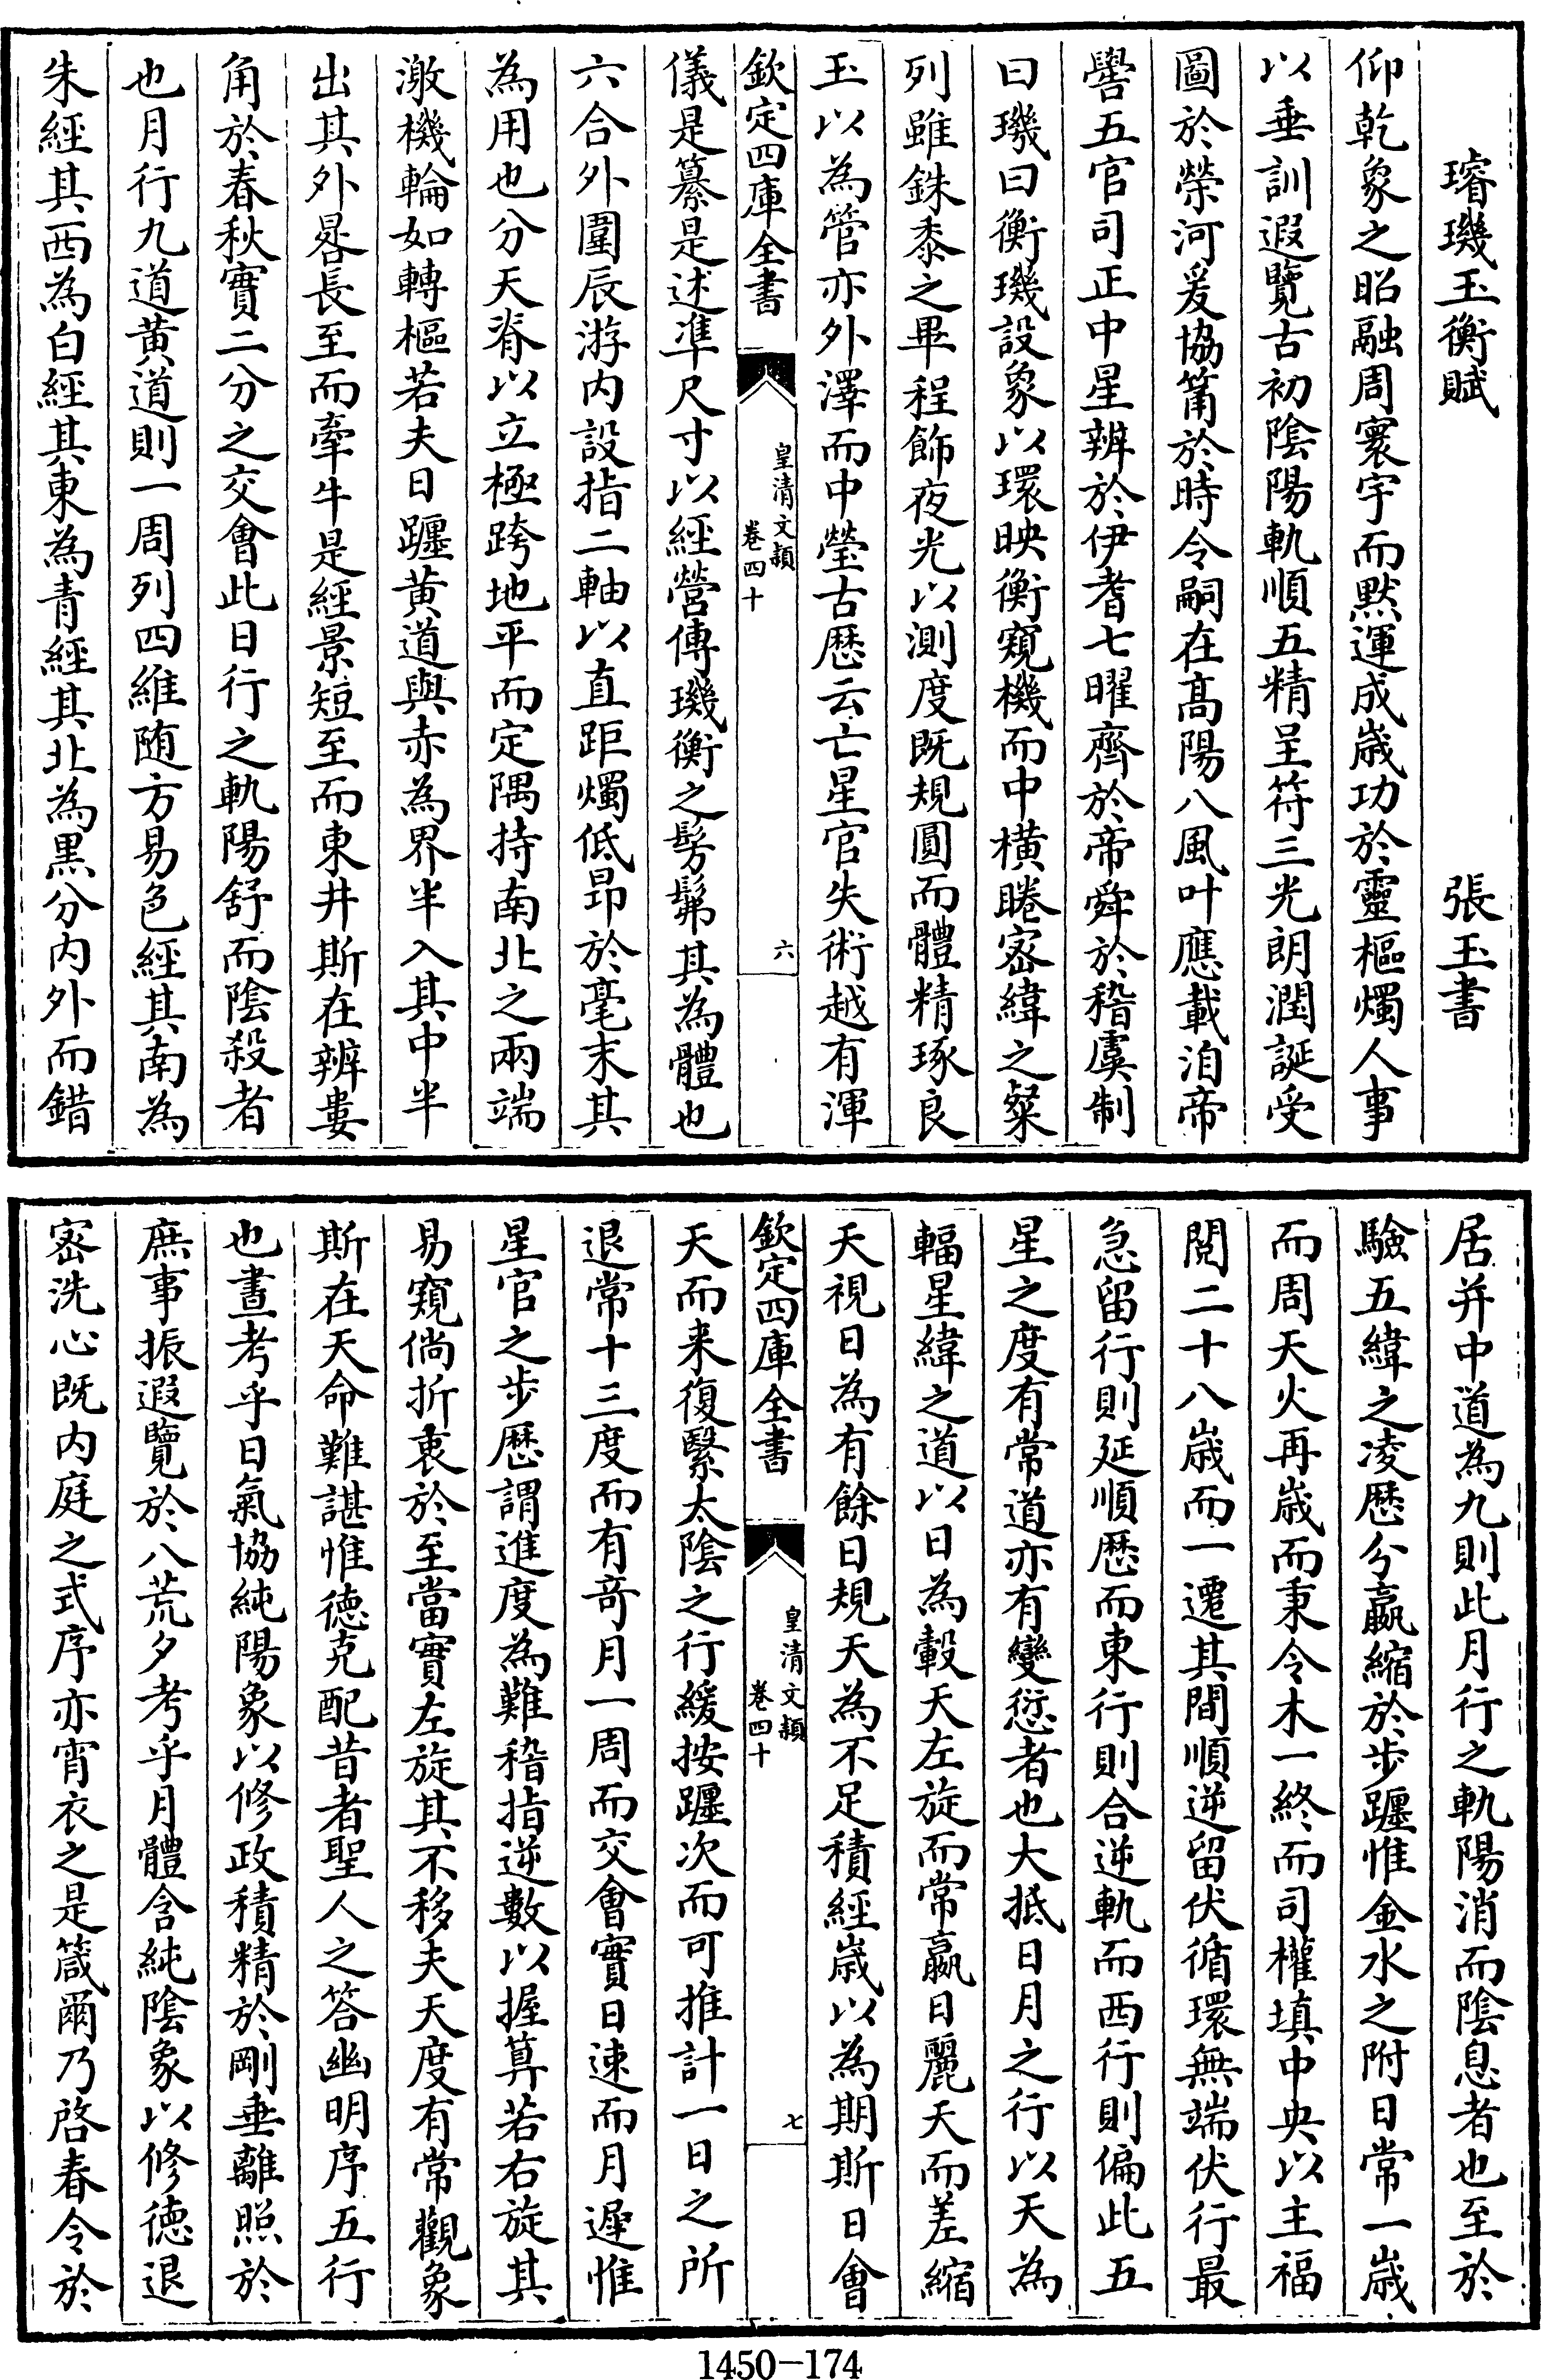 璿璣玉衡賦　張玉書
仰乾象之昭融周寰宇而默運成歳功於靈樞燭人事
以垂訓遐覽古初陰陽軌順五精呈符三光朗潤誕受
圖於榮河爰協籥於時令嗣在髙陽八風叶應載洎帝
嚳五官司正中星辨於伊耆七曜齊於帝舜於稽虞制
曰璣曰衡璣設象以環映衡窺機而中橫睠宻緯之粲
列雖銖黍之畢程飾夜光以測度既規圓而體精琢良
玉以為管亦外澤而中瑩古厯云亡星官失術越有渾
欽定四庫全書
皇清文穎
卷四十
六
儀是纂是述凖尺寸以經營傳璣衡之髣髴其為體也
六合外圍辰游内設指二軸以直距燭低昂於毫末其
為用也分天脊以立極跨地平而定隅持南北之兩端
激機輪如轉樞若夫日躔黄道與赤為界半入其中半
出其外晷長至而牽牛是經景短至而東井斯在辨婁
角於春秋實二分之交會此日行之軌陽舒而隂殺者
也月行九道黄道則一周列四維随方易色經其南為
朱經其西為白經其東為青經其北為黒分内外而錯
居并中道為九則此月行之軌陽消而隂息者也至於
驗五緯之凌厯分贏縮於步躔惟金水之附日常一歳
而周天火再歳而秉令木一終而司權填中央以主福
閲二十八歳而一遷其間順逆留伏循環無端伏行最
急留行則延順厯而東行則合逆軌而西行則偏此五
星之度有常道亦有變愆者也大抵日月之行以天為
輻星緯之道以日為轂天左旋而常贏日麗天而差縮
天視日為有餘日規天為不足積經歳以為期斯日會
欽定四庫全書
皇清文穎
卷四十
七
天而来復緊太隂之行緩按躔次而可推計一日之所
退常十三度而有竒月一周而交會實日速而月遲惟
星官之步厯謂進度為難稽指逆數以握算若右旋其
易窺倘折衷於至當實左旋其不移夫天度有常觀象
斯在天命難諶惟德克配昔者聖人之答幽明序五行
也晝考乎日氣協純陽象以修政積精於剛垂離照於
庶事振遐覽於八荒夕考乎月體含純隂象以修徳退
宻洗心既内庭之式序亦宵衣之是箴爾乃啓春令於
1450-174